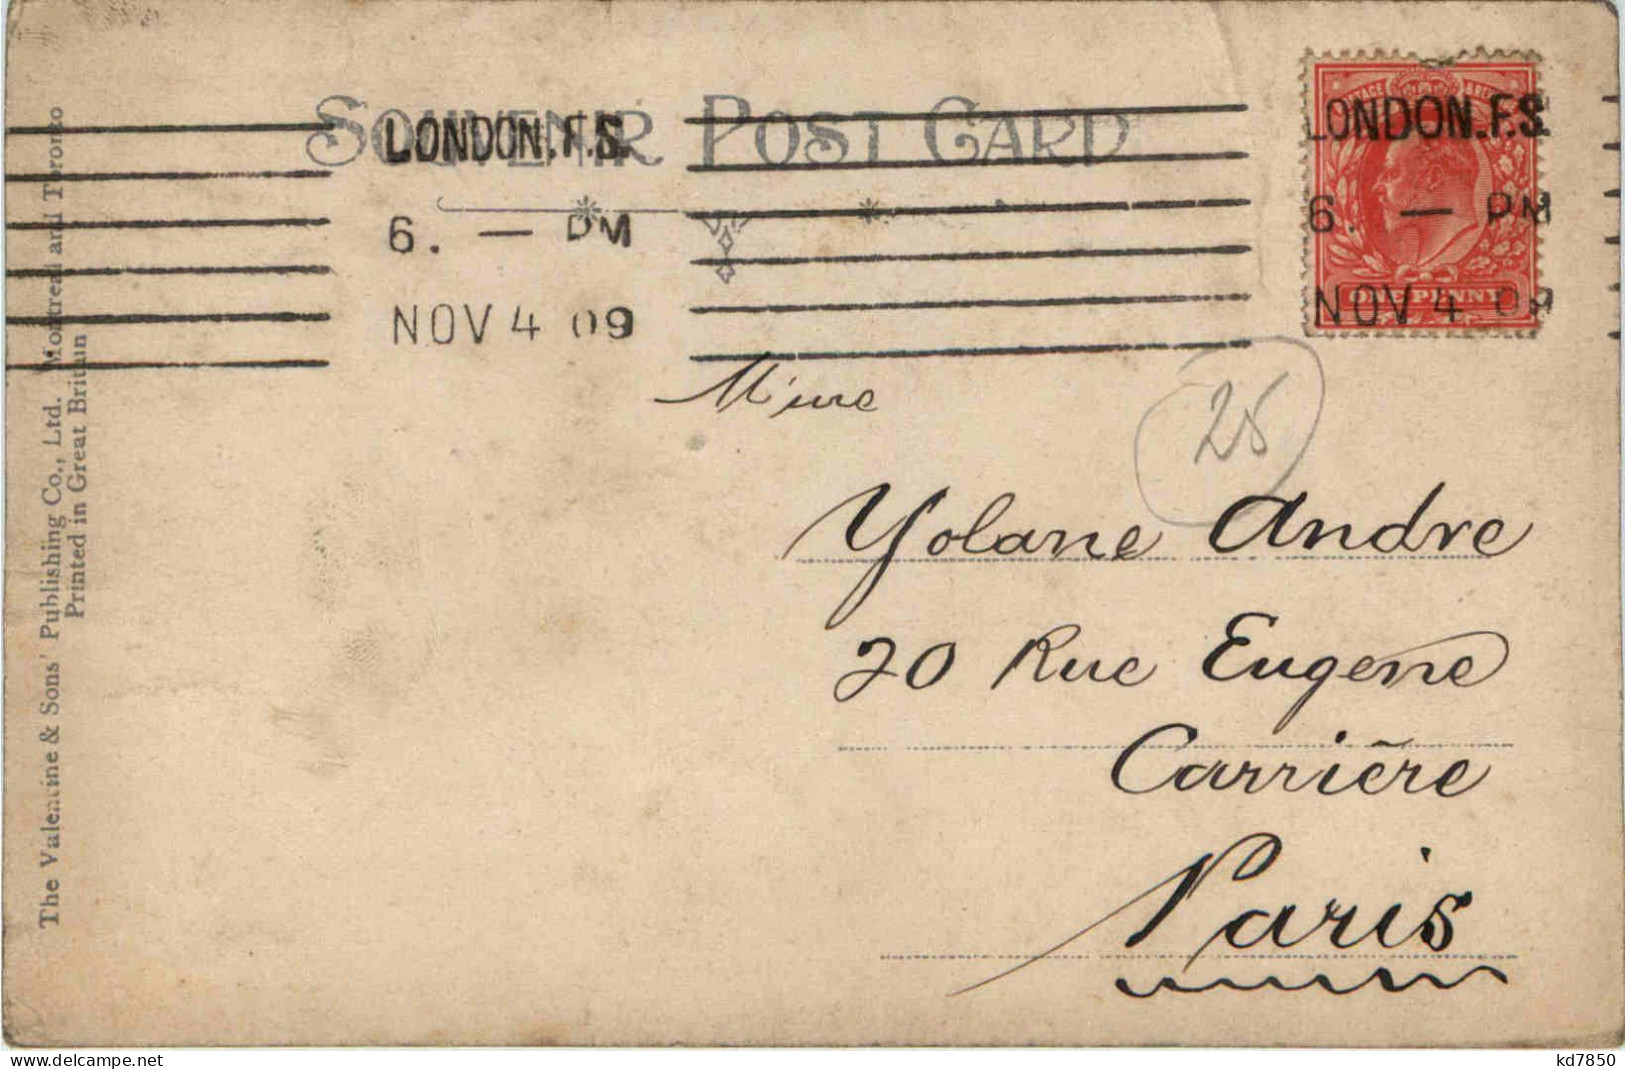 SOUVENIR POST CARD
LONDON.F.S.
6. — PM
NOV 4 09
LONDON.F.S.
6. — PM
NOV 4 09
ONE PENNY
25
Mme
Yolane Andre
20 Rue Eugene
Carrière
Paris
The Valentine & Sons' Publishing Co., Ltd. Montreal and Toronto
Printed in Great Britain
delcampe.net
kd7850